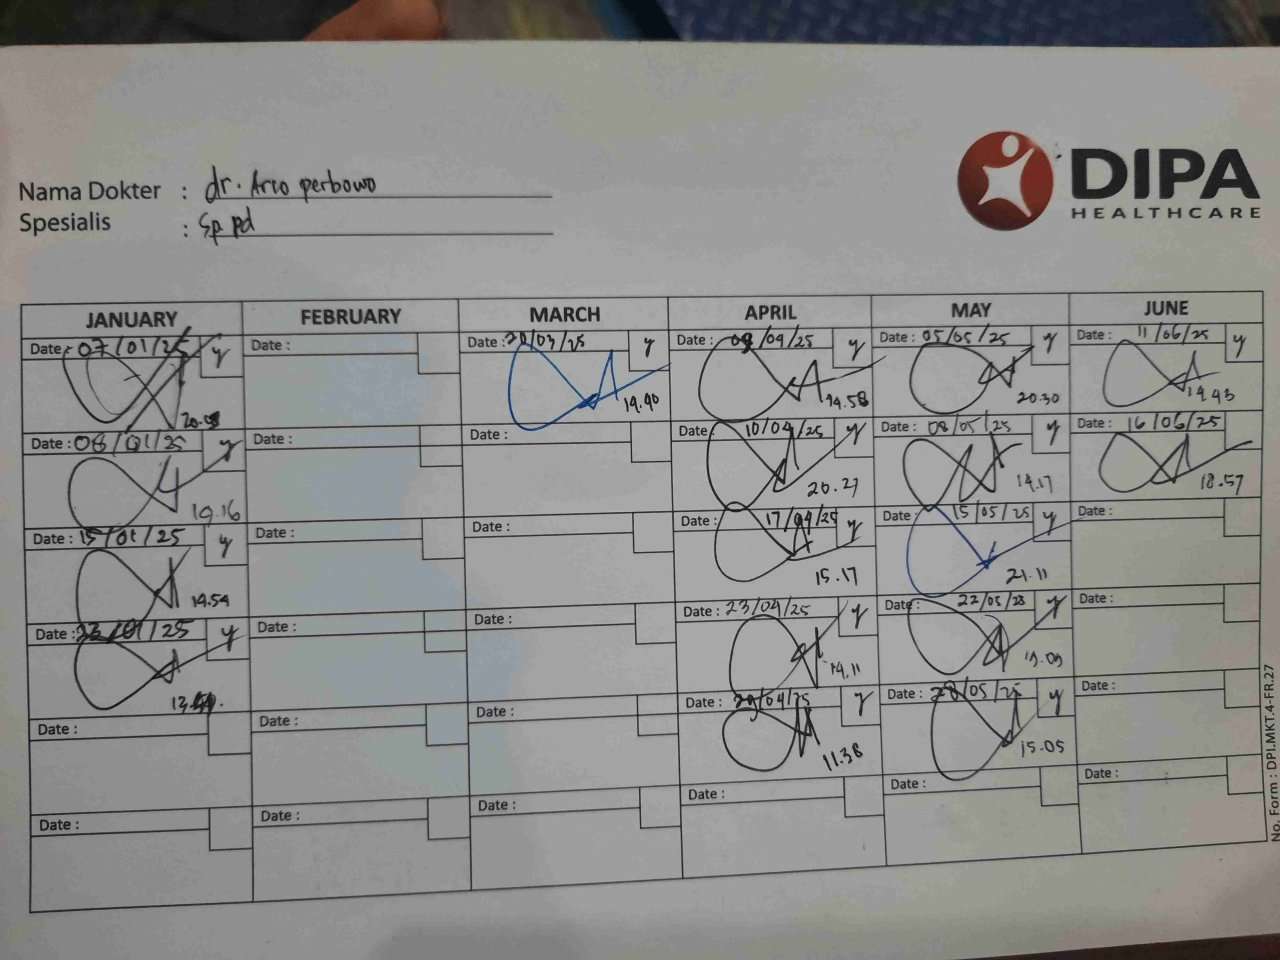 DIPA
HEALTHCARE
Nama Dokter : dr. Arco perbowo
Spesialis : Sp pd
JANUARY FEBRUARY MARCH APRIL MAY JUNE
Date : 07/01/25 y Date : Date : 20/03/25 y Date : 09/04/25 y Date : 05/05/25 y Date : 11/06/25 y
19.40 14.58 20.30 19.43
Date : 08/01/25 y Date : Date : Date : 10/04/25 y Date : 08/05/25 y Date : 16/06/25
19.16 20.27 14.17 18.57
Date : 15/01/25 y Date : Date : Date : 17/04/25 y Date : 15/05/25 y Date :
14.54 15.17 21.11
Date : 23/01/25 y Date : Date : Date : 23/04/25 y Date : 22/05/25 y Date :
19.11 19.09
Date : Date : Date : Date : 29/04/25 y Date : 28/05/25 y Date :
11.38 15.05
Date : Date : Date : Date : Date : Date :
No. Form : DPI.MKT.4-FR.27